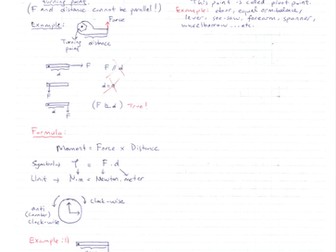 turning point.
(F and distance cannot be parallel!)
Example:
Force
Turning point
distance
d
F
F // d
d
F
d = 0
d
F
(F ⊥ d) True!
Formula:
Moment = Force x Distance
Symbols
= F . d
Unit → N.m = Newton.meter
clock-wise
anti
(counter)
clock-wise
Example:1)
This point is called pivot point.
Example: door, equal arm balance,
lever, see-saw, forearm, spanner,
wheelbarrow ... etc.